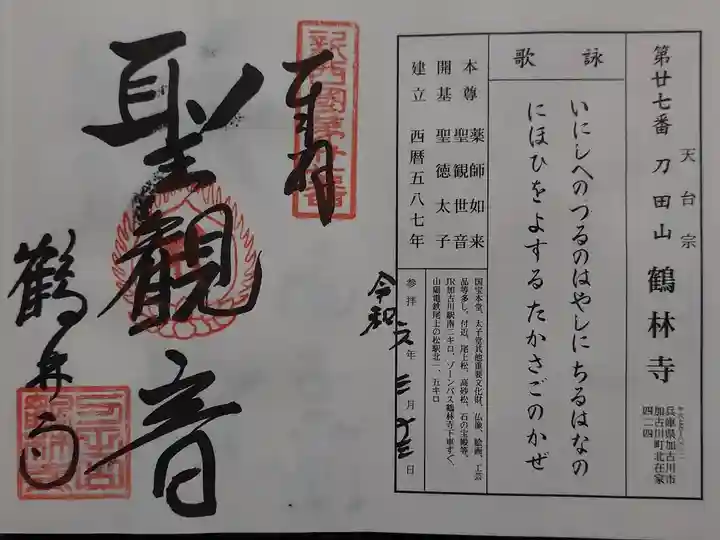 第廿七番 刀田山 鶴林寺
天台宗
兵庫県加古川市
加古川町北在家
四二四
詠歌
いにしへのつるのはやしにちるはなの
にほひをよするたかさごのかぜ
本尊 薬師如来
聖観世音
開基 聖徳太子
建立 西暦五八七年
国宝本堂、太子堂其他重要文化財、仏像、絵画、工芸
品等多し、付近、尾上松、高砂松、石の宝殿等、
JR加古川駅南二キロ、ゾーンバス鶴林寺下車すぐ、
山陽電鉄尾上の松駅北一、五キロ
参拝 令和 六年 三月 十三日
奉拝
聖観音
鶴林寺